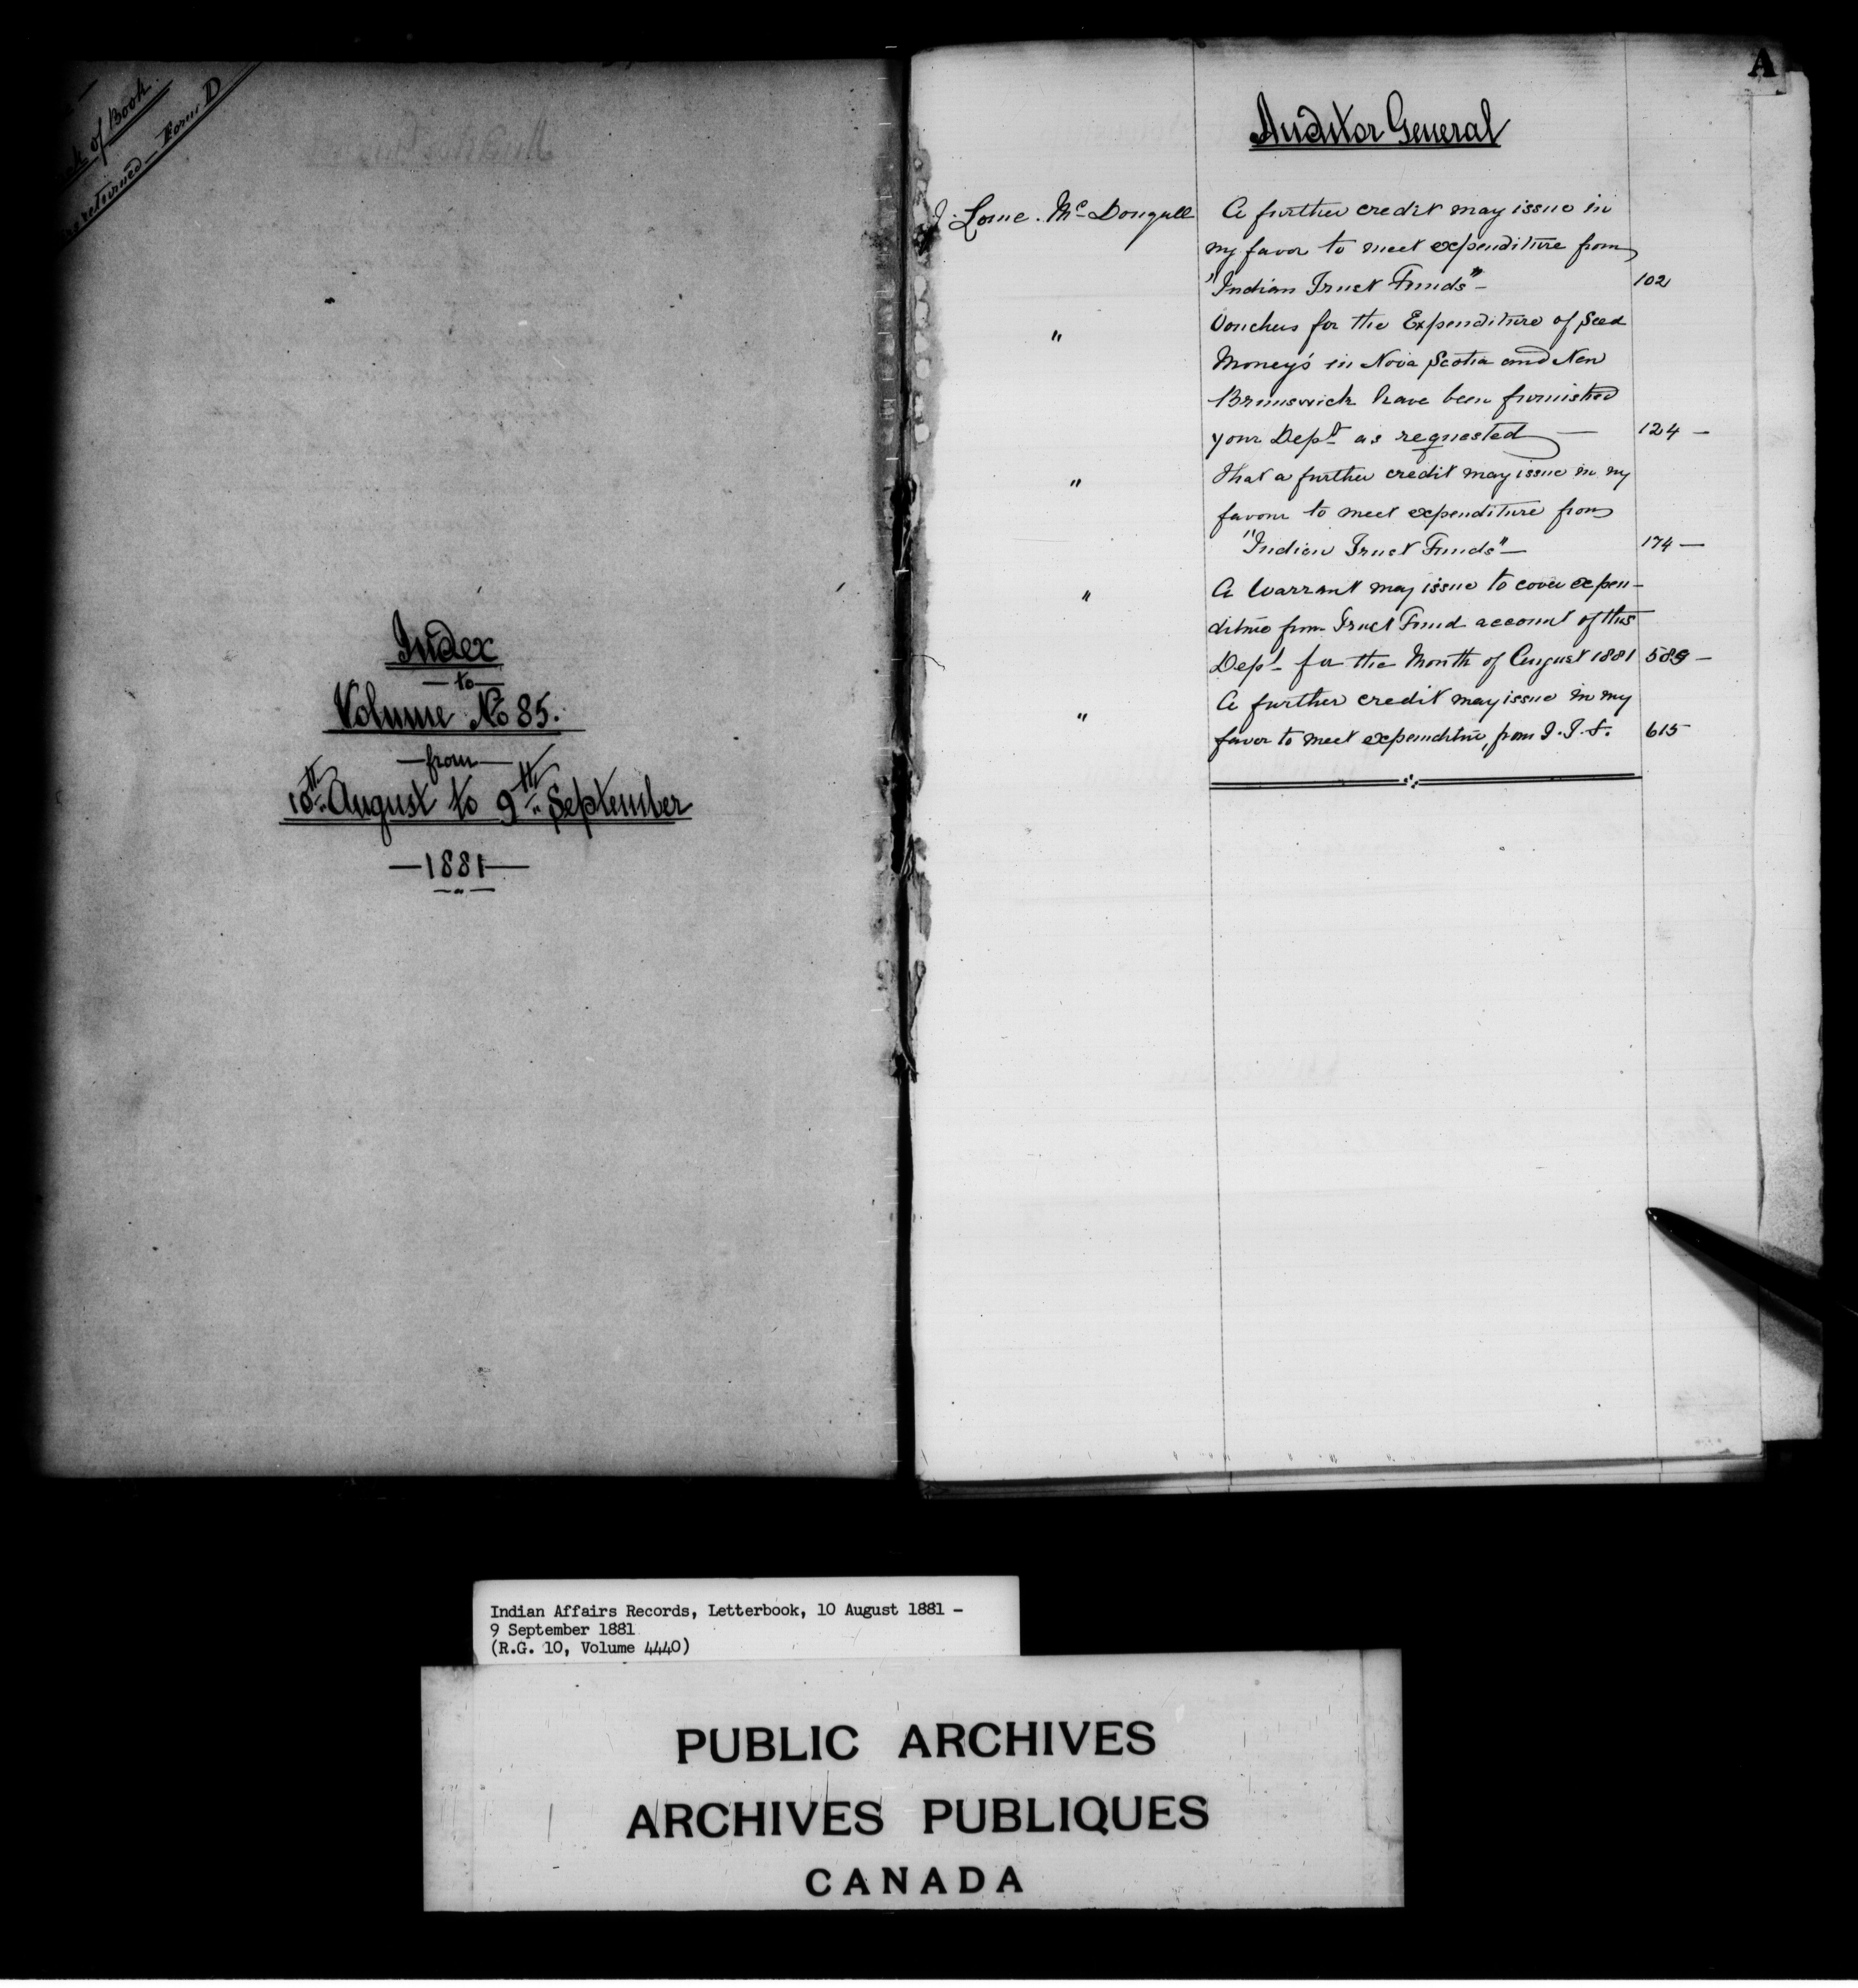 of Book.
returned — Form D
Index
— to —
Volume No 85.
— from —
10th August to 9th September
— 1881 —
A
Auditor General
J. Lorne. Mc Dougall A further credit may issue in
my favor to meet expenditure from
"Indian Trust Funds" — 102
" Vouchers for the Expenditure of Seed
Money's in Nova Scotia and New
Brunswick have been furnished
your Dept as requested — 124 —
" That a further credit may issue in my
favour to meet expenditure from
"Indian Trust Funds" — 174 —
" A Warrant may issue to cover expen-
diture from Trust Fund account of this
Dept for the Month of August 1881 585 —
" A further credit may issue in my
favor to meet expenditure, from I.T.F. 615
Indian Affairs Records, Letterbook, 10 August 1881 –
9 September 1881
(R.G. 10, Volume 4440)
PUBLIC ARCHIVES
ARCHIVES PUBLIQUES
CANADA